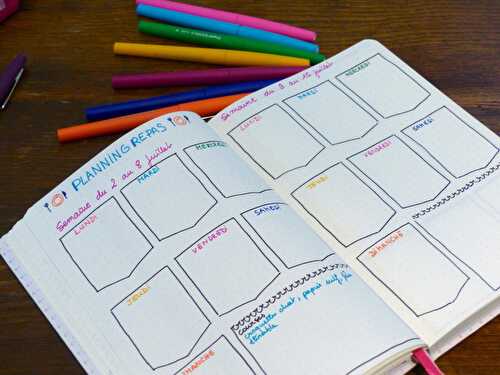 PLANNING REPAS
Semaine du 2 au 8 juillet
LUNDI
MARDI
MERCREDI
JEUDI
VENDREDI
SAMEDI
DIMANCHE
courses
Semaine du 9 au 15 juillet
LUNDI
MARDI
MERCREDI
JEUDI
VENDREDI
SAMEDI
DIMANCHE